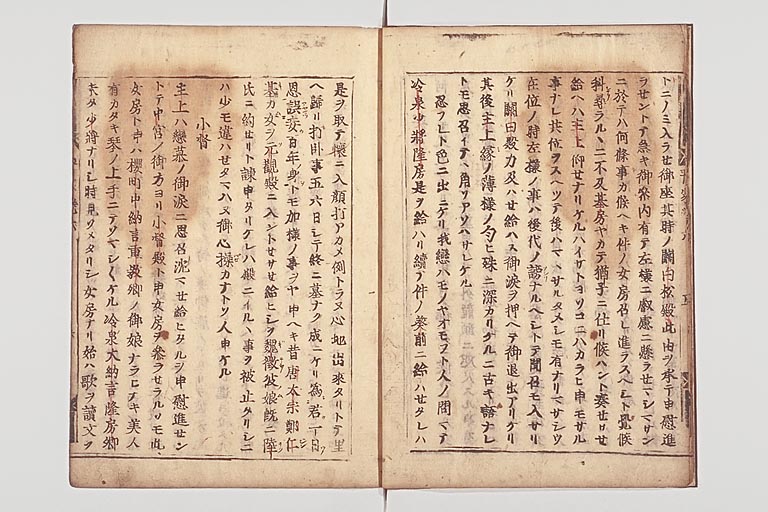 トニノミ入ラせ御座其時ノ關白松殿此由ヲ承テ申慰進
ラせントテ急キ御参内有テ左様ニ叡慮ニ懸ラせマシマサン
ニ於テハ何條事カ候ヘキ件ノ女房召レ進ラスヘシト覺候
科尋ラルヽニ不及基房ヤカテ猶子ニ仕リ候ハント奏せサせ
給ヘハ主上仰せナリケルハイサトヨソコニハカラヒ申モサル
事ナレ共位ヲスヘツテ後ハマヽサルタメシモ有ナリマサシウ
在位ノ時左様ノ事ハ後代ノ謗ナルヘシトテ聞召モ入サリ
ケリ關白殿力及ハせ給ハス御涙ヲ押ヘテ御退出アリケリ
其後主上緑ノ薄様ノ匂ヒ殊ニ深カリケルニ古キ語ナレ
トモ思召イテヽ角ソアソハサレケル
忍フレト色ニ出ニケリ我戀ハモノヤオモフト人ノ問マテ
冷泉少將隆房是ヲ給ハリ續テ件ノ葵前ニ給ハせタレハ
是ヲ取テ懐ニ入顔打アカメ例ナラヌ心地出来タリトテ里
ヘ歸リ打臥事五六日シテ終ニ墓ナク成ニケリ為君一日
恩誤妾百年身トモ加様ノ事ヲヤ申ヘキ昔唐太宗鄭仁
基カ女ヲ元觀殿ニ入ントせサせ給ヒシヲ魏徴彼娘既ニ陸
氏ニ約せリト諫申タリケレハ殿ニイルヽ事ヲ被止タリシニ
ハ少モ違ハせタマハヌ御心操カナトソ人申ケル
小督
主上ハ戀慕ノ御涙ニ思召沈マせ給ヒタルヲ申慰進せン
トテ中宮ノ御方ヨリ小督殿ト申女房ヲ参ラせラルソモ此
女房ト申ハ櫻町中納言重教卿ノ御娘ナラヒナキ美人
有カタキ琴ノ上手ニテソマシ〱ケル冷泉大納言隆房卿
未タ少將ナリシ時見ソメタリシ女房ナリ始ハ歌ヲ讀文ヲ